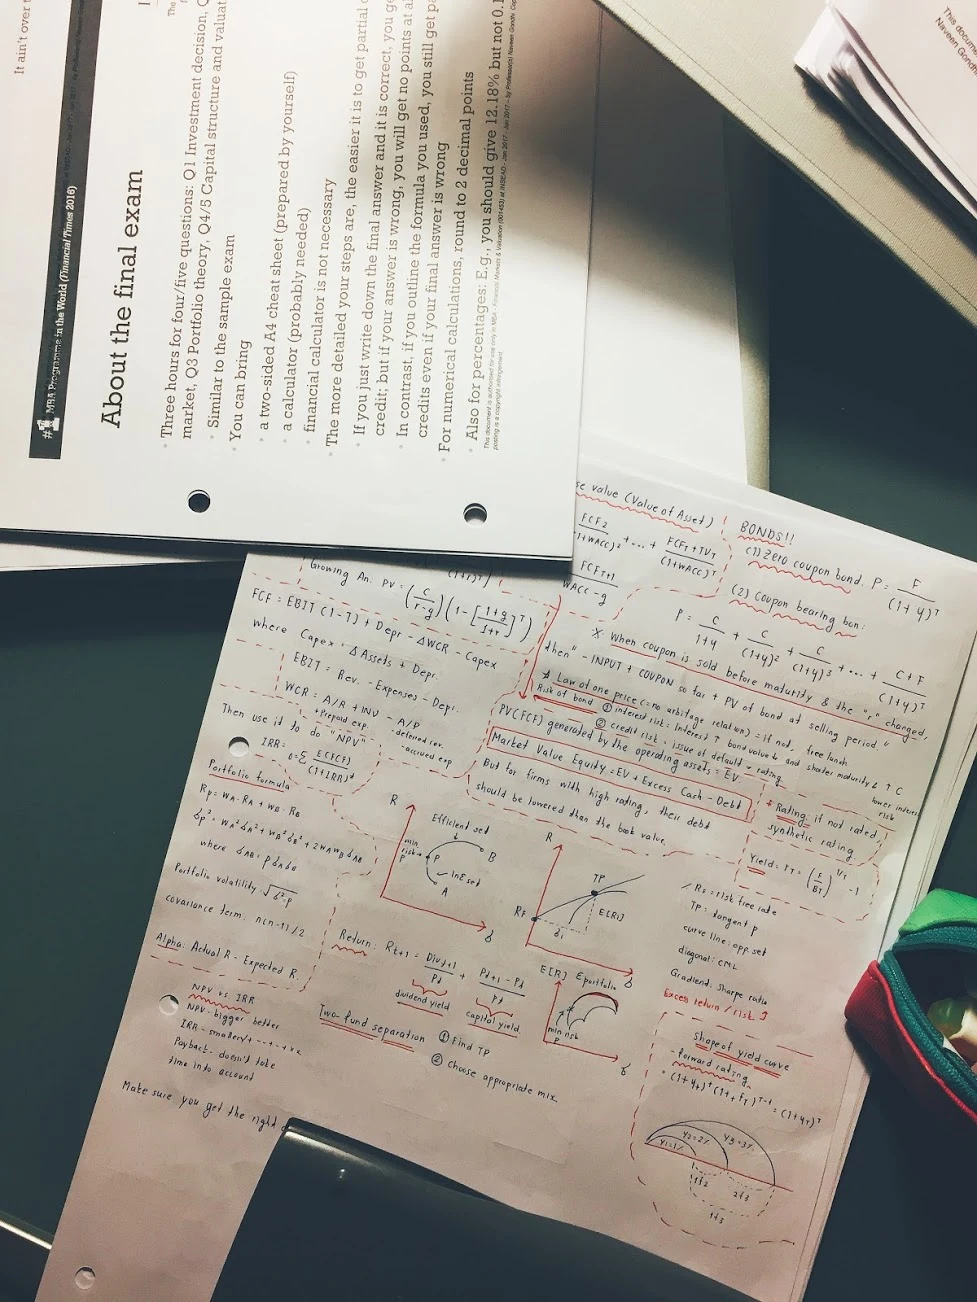 It ain't over t
MBA Programme in the World (Financial Times 2016)
About the final exam
Three hours for four/five questions: Q1 Investment decision, Q
market, Q3 Portfolio theory, Q4/5 Capital structure and valuat
Similar to the sample exam
You can bring
a two-sided A4 cheat sheet (prepared by yourself)
a calculator (probably needed)
financial calculator is not necessary
The more detailed your steps are, the easier it is to get partial c
If you just write down the final answer and it is correct, you ge
credit; but if your answer is wrong, you will get no points at a
In contrast, if you outline the formula you used, you still get pa
credits even if your final answer is wrong
For numerical calculations, round to 2 decimal points
Also for percentages: E.g., you should give 12.18% but not 0.1
This docum
Naveen Gondh
se value (Value of Asset)
FCF2/(1+WACC)² + ... + FCFT+TVT/(1+WACC)^T
FCFT+1/WACC-g
Growing An. PV = (C/r-g)(1-[1+g/1+r]^T)
FCF = EBIT (1-T) + Depr - ΔWCR - Capex
where Capex = Δ Assets + Depr.
EBIT = Rev. - Expenses - Depr.
WCR = A/R + INV - A/P
+Prepaid exp. -deferred rev.
-accrued exp
Then use it to do "NPV"
IRR: 0=Σ E(CFCF)/(1+IRR)^t
Portfolio formula
Rp = WA·RA + WB·RB
where
Portfolio volatility
covariance term: n(n-1)/2
Alpha: Actual R - Expected R.
NPV vs. IRR
NPV - bigger better
Payback - doesn't take
time into account
Make sure you get the right
BONDS!!
(1) Zero coupon bond. P = F/(1+y)^T
(2) Coupon bearing bon:
P = C/1+y + C/(1+y)² + C/(1+y)³ + ... + C+F/(1+y)^T
X. When coupon is sold before maturity & the "r" changed,
then" - INPUT + COUPON so far + PV of bond at selling period."
Law of one price (= no arbitrage relation) = if not, free lunch
Risk of bond ① interest risk: interest ↑ bond value ↓ and shorter maturity
② credit risk. issue of default
lower interest
risk
PV(FCF) generated by the operating assets = EV
Market Value Equity = EV + Excess Cash - Debt
But for firms with high rating, their debt
should be lowered than the book value.
+ Rating: if not rated,
synthetic rating
R
Efficient set
min
risk
P
B
A
R
TP
RF
E[Ri]
Rf = risk free rate
TP: tangent P
curve line: opp. set
diagonal: CML
Gradient: sharpe ratio
Excess return / risk
Return: Rt+1 = Divt+1/Pt + Pt+1 - Pt/Pt
dividend yield
capital yield
E[R]
min risk
P
Two-fund separation ① Find TP
② Choose appropriate mix.
Shape of yield curve
- forward rating
y1=1%
y2=2%
y3=3%
1f2
2f3
1f3